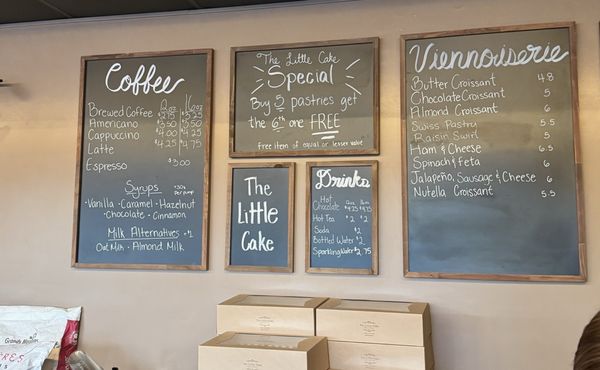 Coffee
12oz 16oz
Brewed Coffee $2.75 $3.25
Americano $3.00 $3.50
Cappuccino $4.00 $4.25
Latte $4.25 $4.75
Espresso $3.00
Syrups
·Vanilla ·Caramel ·Hazelnut
·Chocolate ·Cinnamon
Milk Alternatives +$1
Oat Milk · Almond Milk
The Little Cake
Special
Buy 5 pastries get
the 6th one FREE
Free item of equal or lesser value
The
Little
Cake
Drinks
Hot
Chocolate
Hot Tea $2 $2
Soda $2
Bottled Water $2
Sparkling Water $2.75
Viennoiserie
Butter Croissant 4.8
Chocolate Croissant 5
Almond Croissant 6
Swiss Pastry 5.5
Raisin Swirl 5
Ham & Cheese 6.5
Spinach & feta 6
Jalapeño, Sausage & Cheese 6
Nutella Croissant 5.5